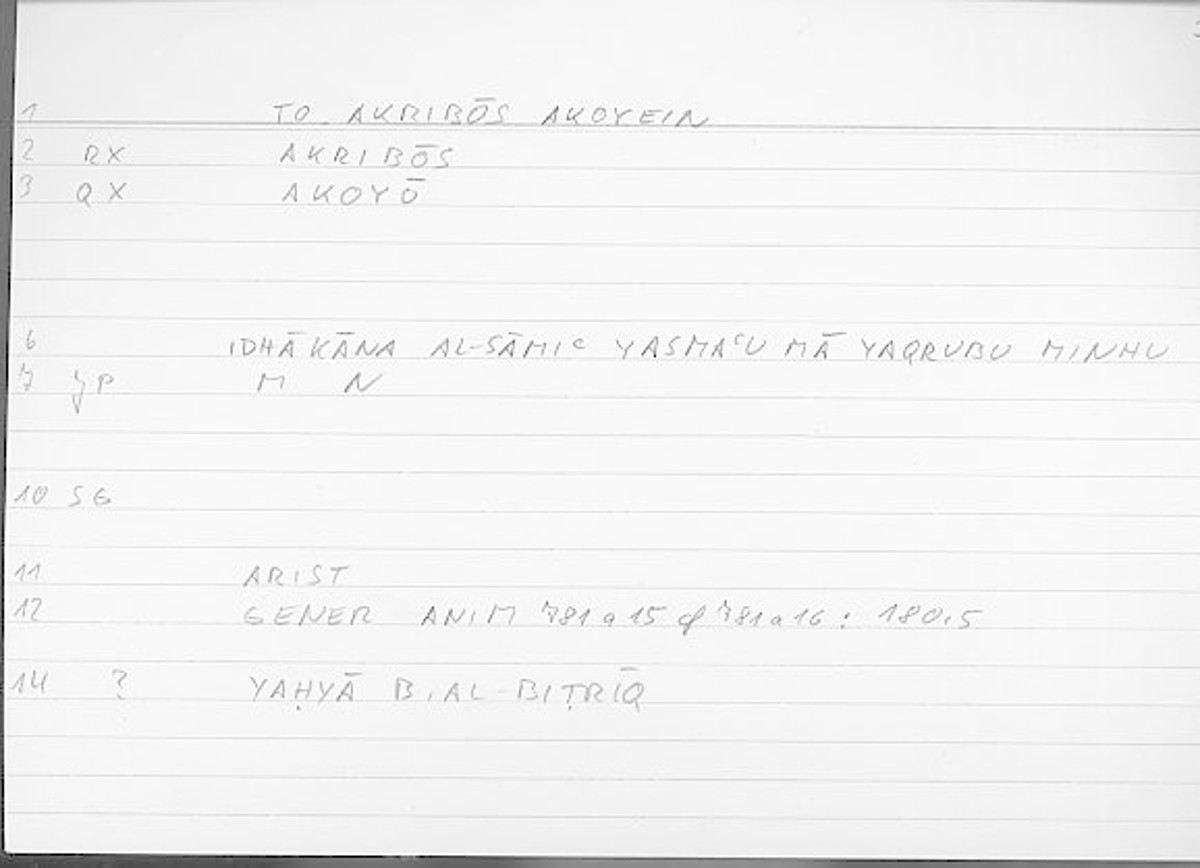 1 TO AKRIBŌS AKOYEIN
2 RX AKRIBŌS
3 QX AKOYŌ
6 IDHĀ KĀNA AL-SĀMIʿ YASMAʿU MĀ YAQRUBU MINHU
7 JP M N
10 SG
11 ARIST
12 GENER ANIM 781a15 cf 781a16 : 180.5
14 ? YAḤYĀ B. AL-BIṬRĪQ